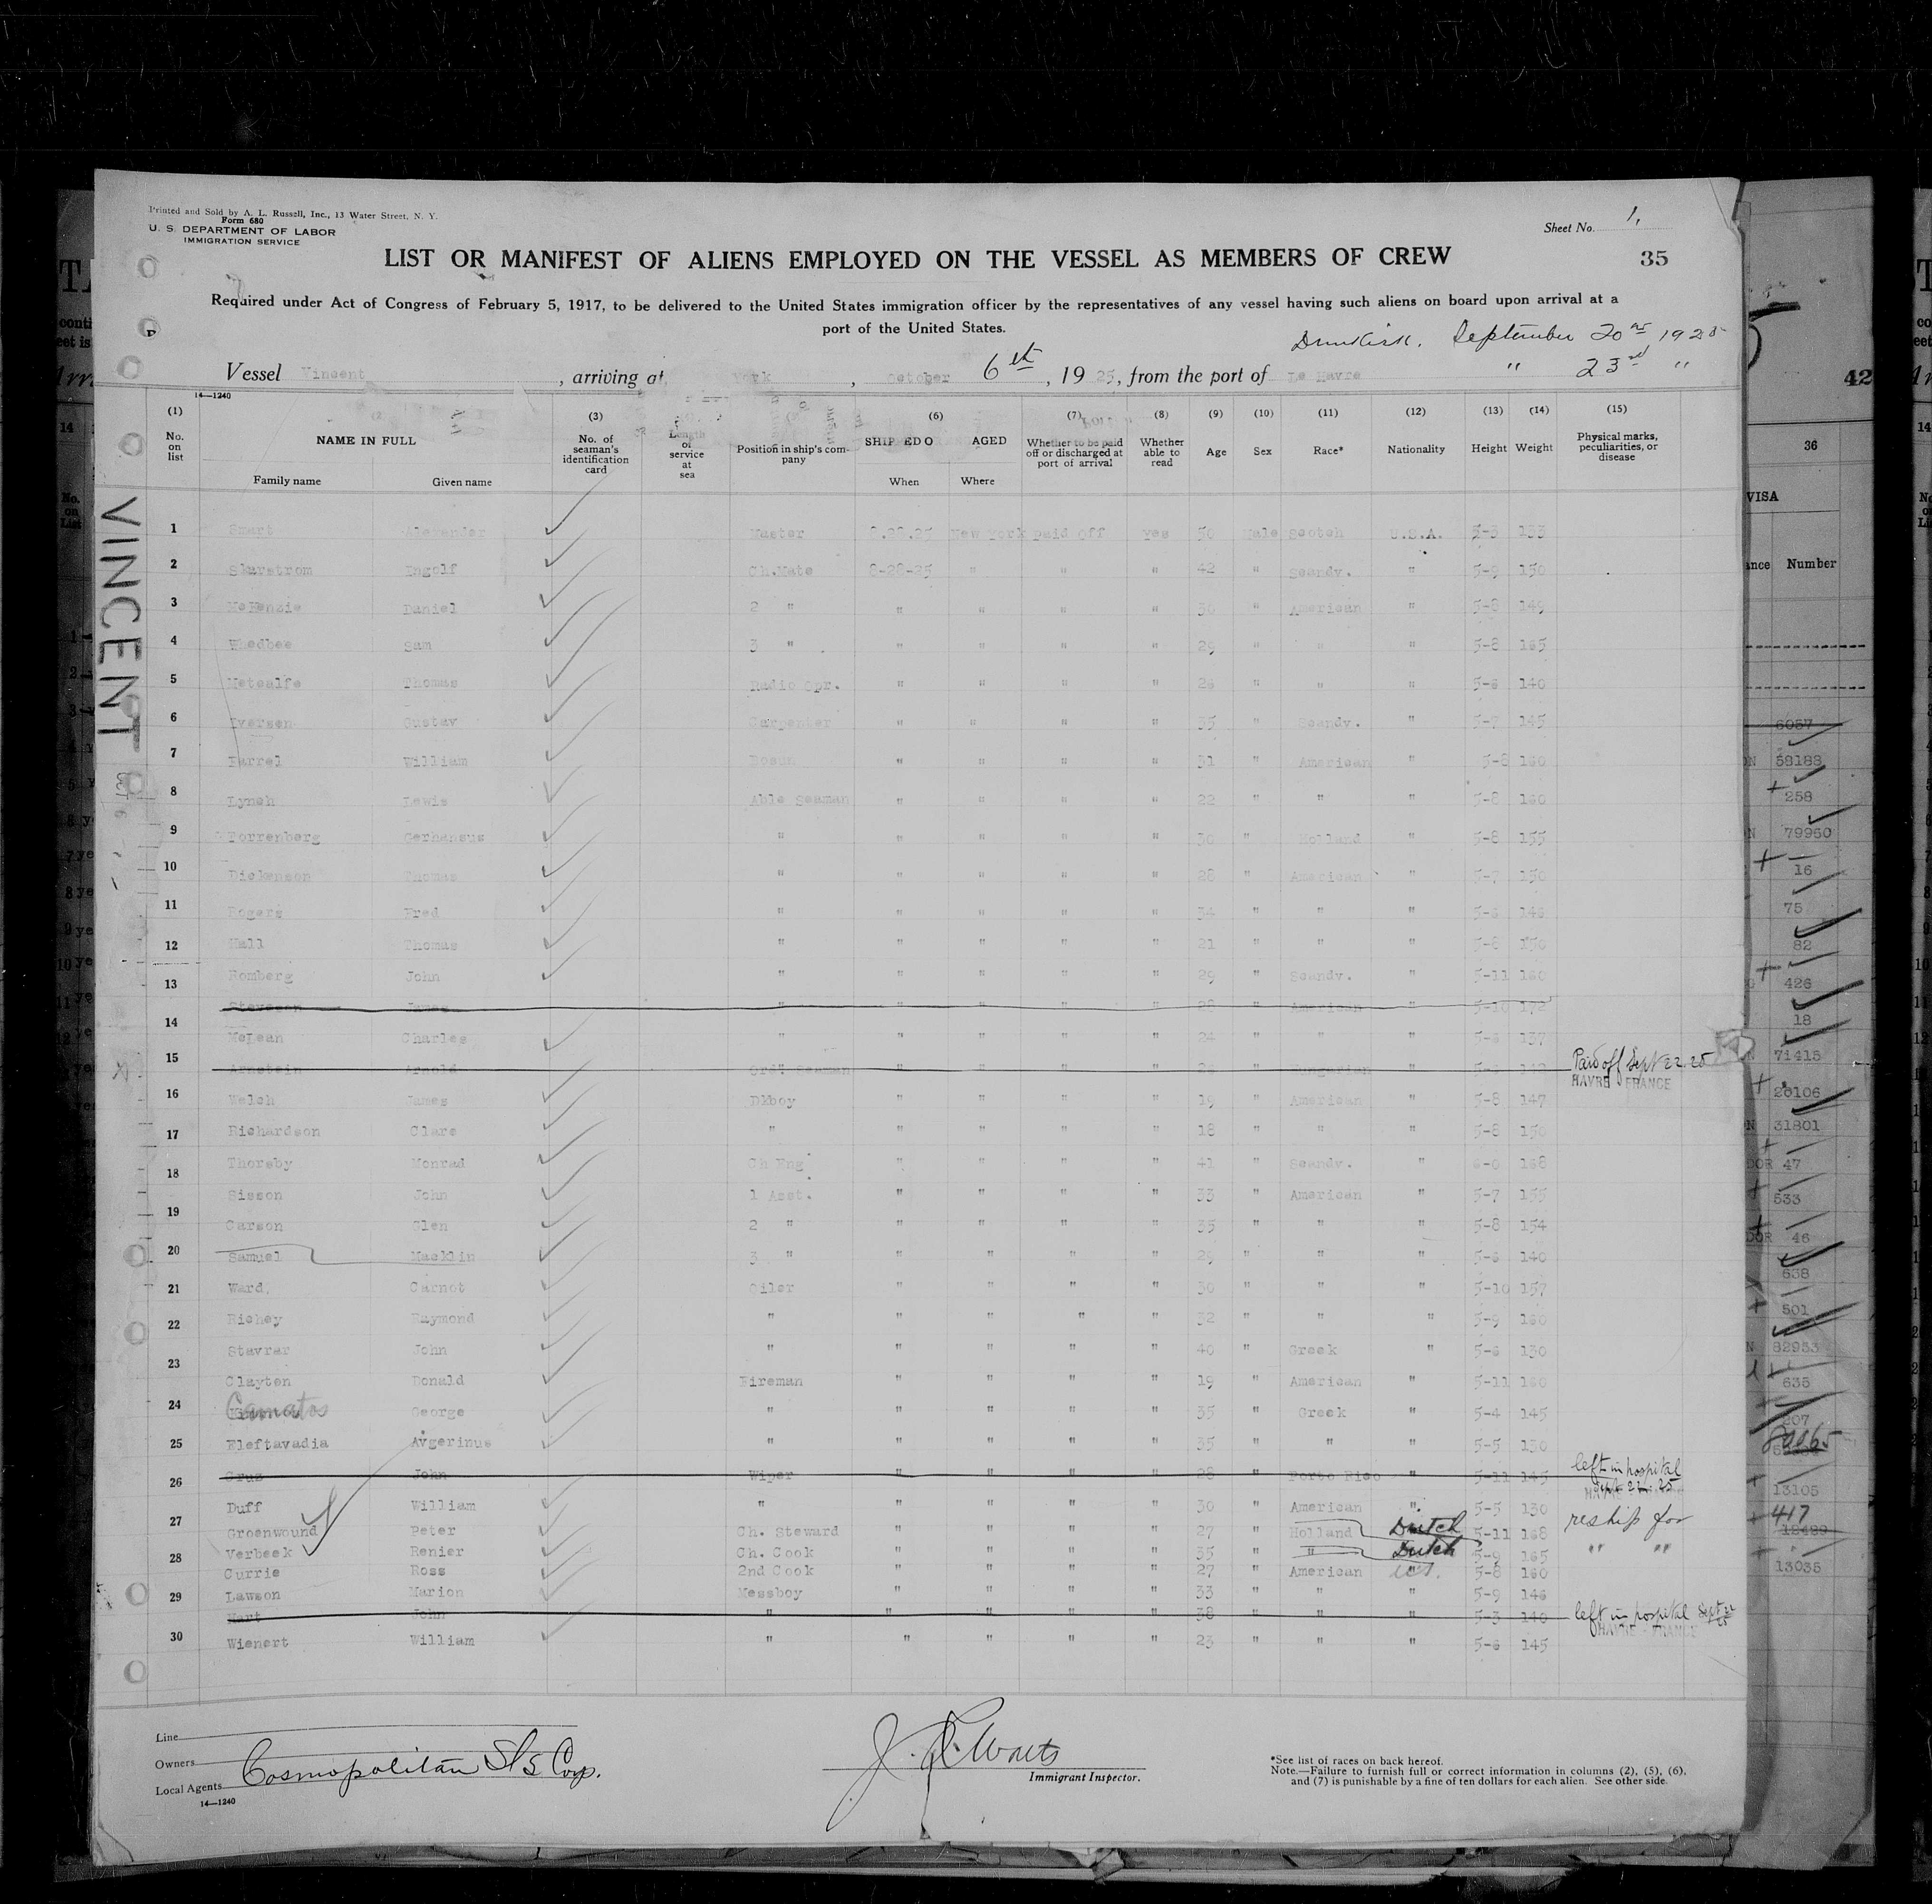 Printed and Sold by A. L. Russell, Inc., 13 Water Street, N. Y.
Form 680
U. S. DEPARTMENT OF LABOR
IMMIGRATION SERVICE
Sheet No. 1.
LIST OR MANIFEST OF ALIENS EMPLOYED ON THE VESSEL AS MEMBERS OF CREW
35
Required under Act of Congress of February 5, 1917, to be delivered to the United States immigration officer by the representatives of any vessel having such aliens on board upon arrival at a
port of the United States.
Dunkirk. September 20 1925
Vessel Vincent, arriving at York, October 6th, 1925, from the port of Le Havre " 23rd "
14—1240
(1) (3) (6) (7) (8) (9) (10) (11) (12) (13) (14) (15)
No. on list NAME IN FULL No. of seaman's identification card Length of service at sea Position in ship's company SHIPPED OR ENGAGED Whether to be paid off or discharged at port of arrival Whether able to read Age Sex Race* Nationality Height Weight Physical marks, peculiarities, or disease
Family name Given name When Where
VINCENT
1 Smart Alexander Master 8.28.25 New York paid off yes 50 Male Scotch U.S.A. 5-8 133
2 Skarstrom Engolf Ch.Mate 8-28-25 " " " 42 " Scandv. " 5-9 150
3 McKenzie Daniel 2 " " " " " 30 " American " 5-8 149
4 Whedbee Sam 3 " " " " " 29 " " " 5-8 165
5 Metcalfe Thomas Radio Opr. " " " " 26 " " " 5-6 140
6 Iversen Gustav Carpenter " " " " 35 " Scandv. " 5-7 145
7 Farrel William Bosun " " " " 31 " American " 5-8 160
8 Lynch Lewis Able Seaman " " " " 22 " " " 5-8 160
9 Torrenberg Gerhansus " " " " " 30 " Holland " 5-8 155
10 Dickenson Thomas " " " " " 28 " American " 5-7 150
11 Rogers Fred " " " " " 34 " " " 5-6 146
12 Hall Thomas " " " " " 21 " " " 5-8 150
13 Romberg John " " " " " 29 " Scandv. " 5-11 160
Stevsson James " " " " " 28 " American " 5-10 172
14 McLean Charles " " " " " 24 " " " 5-6 137
15 Arnstein Arnold Ord. Seaman " " " " " Hungarian " Paid off Sept 22 25
HAVRE FRANCE
16 Welch James DKboy " " " " 19 " American " 5-8 147
17 Richardson Clare " " " " " 18 " " " 5-8 150
18 Thorsby Monrad Ch Eng " " " " 41 " Scandv. " 6-0 168
Sisson John 1 Asst. " " " " 33 " American " 5-7 155
19 Carson Glen 2 " " " " " 35 " " " 5-8 154
20 Samuel Macklin 3 " " " " " 29 " " " 5-6 140
21 Ward, Carnot Oiler " " " " 30 " " " 5-10 157
22 Richey Raymond " " " " " 32 " " " 5-9 160
Stavrar John " " " " " 40 " Greek " 5-6 130
23 Clayten Donald Fireman " " " " 19 " American " 5-11 160
24 Camatos George " " " " " 35 " Greek " 5-4 145
25 Eleftavadia Avgerinus " " " " " 35 " " " 5-5 130
26 Cruz John Wiper " " " " 28 " Porto Rico " 5-11 145 left in hospital
Sept 22 25
Duff William " " " " " 30 " American " 5-5 130
27 Groenwound Peter Ch. Steward " " " " 27 " Holland Dutch 5-11 168 reship for
28 Verbeek Renier Ch. Cook " " " " 35 " " Dutch 5-9 165 " "
Currie Ross 2nd Cook " " " " 27 " American 5-8 160
29 Lawson Marion Messboy " " " " 33 " " " 5-9 146
Hart John " " " " " 38 " " " 5-3 140 left in hospital Sept 22 25
HAVRE - FRANCE
30 Wienert William " " " " " 23 " " " 5-6 145
Line
Owners
Local Agents Cosmopolitan S/S Corp.
14—1240
Immigrant Inspector.
*See list of races on back hereof.
Note.—Failure to furnish full or correct information in columns (2), (5), (6),
and (7) is punishable by a fine of ten dollars for each alien. See other side.
42
36
VISA
Number
6057
58188
258
79950
16
75
82
426
18
71415
26106
31801
47
533
46
638
501
82953
635
207
13105
417
13035